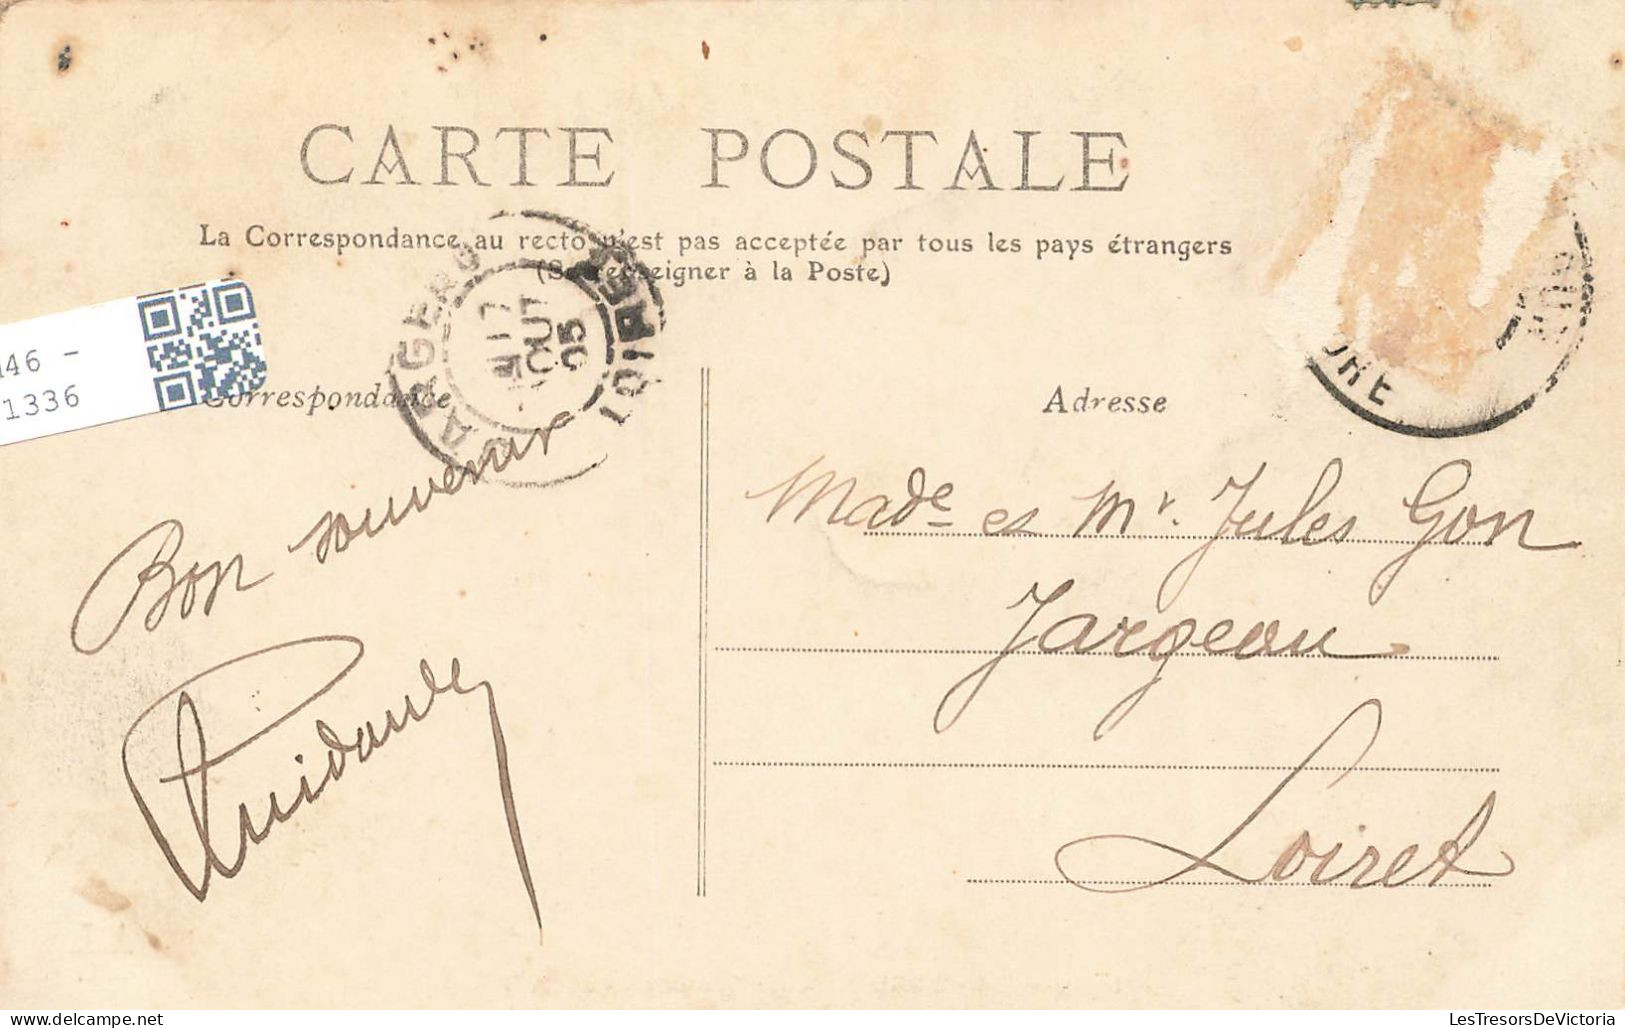 CARTE POSTALE
La Correspondance au recto n'est pas acceptée par tous les pays étrangers
(Se renseigner à la Poste)
46 -
1336
Correspondance
Adresse
LOIRET
OUT
05
Bon souvenir
Made et Mr. Jules Gon
Jargeau
Loiret
LesTresorsDeVictoria